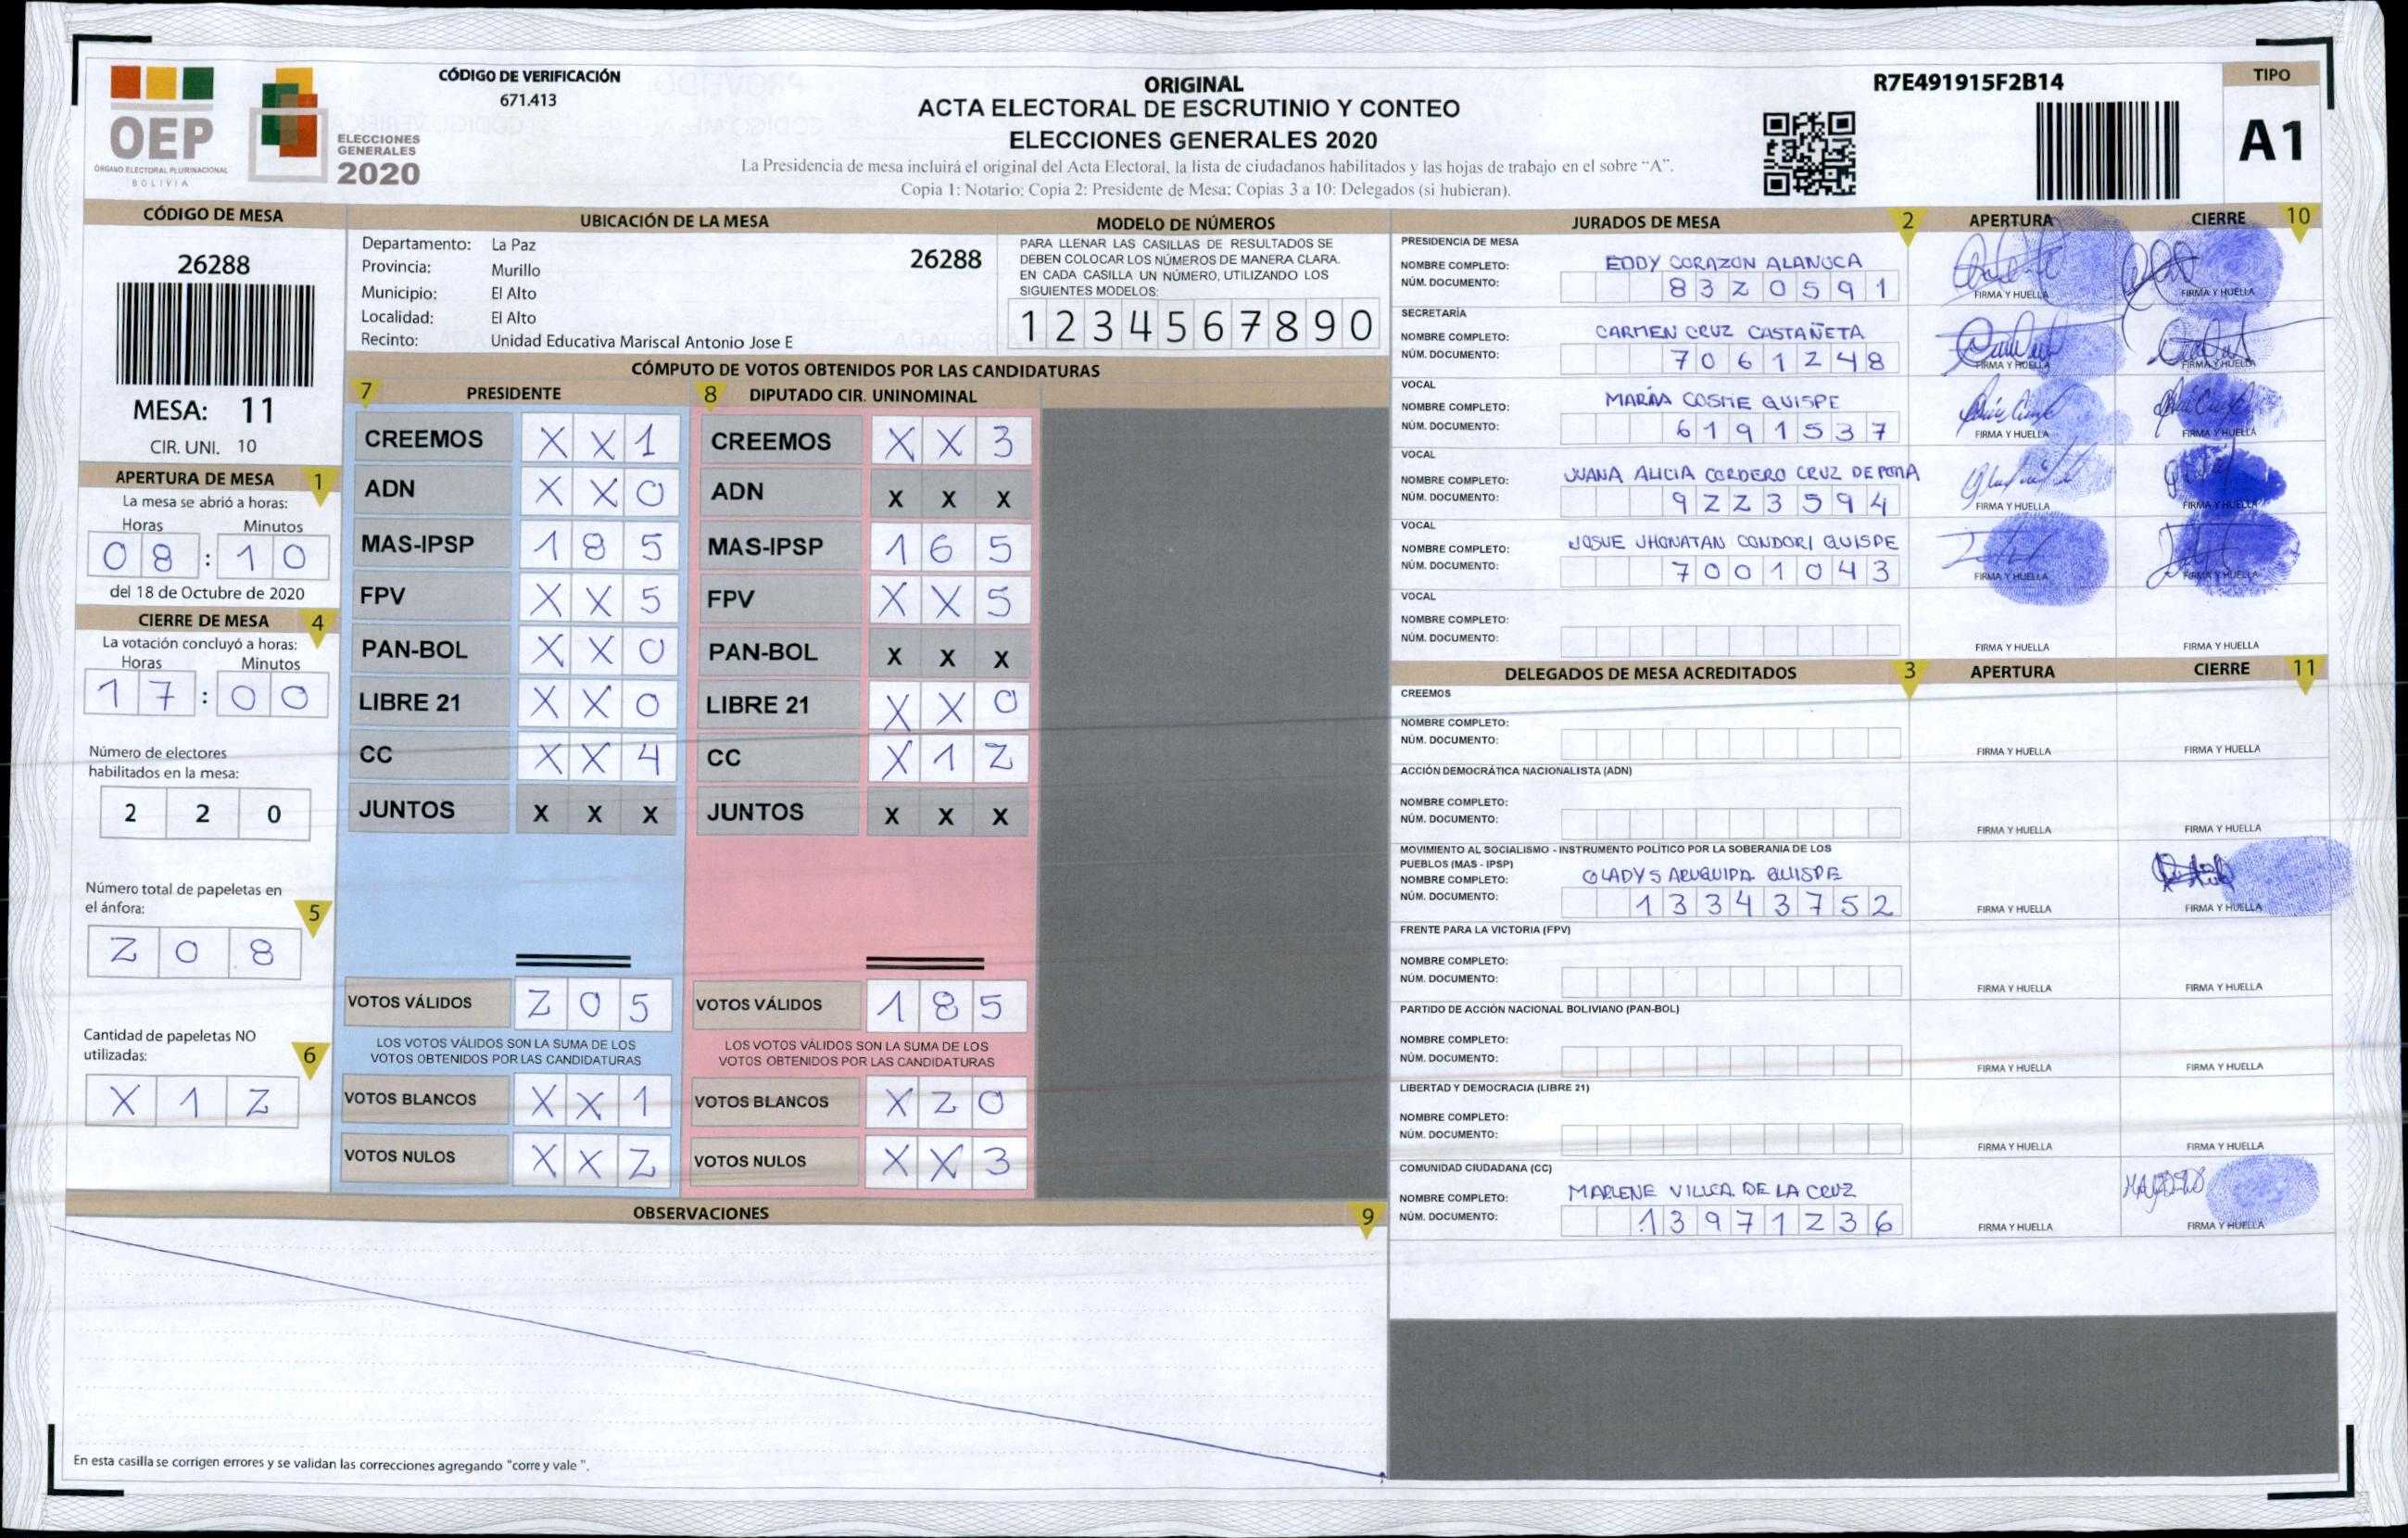 OEP
ÓRGANO ELECTORAL PLURINACIONAL
BOLIVIA
ELECCIONES
GENERALES
2020
CÓDIGO DE VERIFICACIÓN
671.413
ORIGINAL
ACTA ELECTORAL DE ESCRUTINIO Y CONTEO
ELECCIONES GENERALES 2020
La Presidencia de mesa incluirá el original del Acta Electoral, la lista de ciudadanos habilitados y las hojas de trabajo en el sobre “A”.
Copia 1: Notario; Copia 2: Presidente de Mesa; Copias 3 a 10: Delegados (si hubieran).
R7E491915F2B14
TIPO
A1
CÓDIGO DE MESA
26288
MESA: 11
CIR. UNI. 10
APERTURA DE MESA 1
La mesa se abrió a horas:
Horas Minutos
08:10
del 18 de Octubre de 2020
CIERRE DE MESA 4
La votación concluyó a horas:
Horas Minutos
17:00
Número de electores
habilitados en la mesa:
2 2 0
Número total de papeletas en
el ánfora:
5
2 0 8
Cantidad de papeletas NO
utilizadas:
6
X 1 2
UBICACIÓN DE LA MESA
Departamento: La Paz 26288
Provincia: Murillo
Municipio: El Alto
Localidad: El Alto
Recinto: Unidad Educativa Mariscal Antonio Jose E
MODELO DE NÚMEROS
PARA LLENAR LAS CASILLAS DE RESULTADOS SE
DEBEN COLOCAR LOS NÚMEROS DE MANERA CLARA.
EN CADA CASILLA UN NÚMERO, UTILIZANDO LOS
SIGUIENTES MODELOS:
1 2 3 4 5 6 7 8 9 0
CÓMPUTO DE VOTOS OBTENIDOS POR LAS CANDIDATURAS
7 PRESIDENTE 8 DIPUTADO CIR. UNINOMINAL
CREEMOS X X 1 CREEMOS X X 3
ADN X X 0 ADN X X X
MAS-IPSP 1 8 5 MAS-IPSP 1 6 5
FPV X X 5 FPV X X 5
PAN-BOL X X 0 PAN-BOL X X X
LIBRE 21 X X 0 LIBRE 21 X X 0
CC X X 4 CC X 1 2
JUNTOS X X X JUNTOS X X X
VOTOS VÁLIDOS 2 0 5 VOTOS VÁLIDOS 1 8 5
LOS VOTOS VÁLIDOS SON LA SUMA DE LOS LOS VOTOS VÁLIDOS SON LA SUMA DE LOS
VOTOS OBTENIDOS POR LAS CANDIDATURAS VOTOS OBTENIDOS POR LAS CANDIDATURAS
VOTOS BLANCOS X X 1 VOTOS BLANCOS X 2 0
VOTOS NULOS X X 2 VOTOS NULOS X X 3
OBSERVACIONES 9
En esta casilla se corrigen errores y se validan las correcciones agregando "corre y vale ".
JURADOS DE MESA 2 APERTURA CIERRE 10
PRESIDENCIA DE MESA
NOMBRE COMPLETO: EDDY CORAZON ALANOCA
NÚM. DOCUMENTO: 8320591 FIRMA Y HUELLA FIRMA Y HUELLA
SECRETARÍA
NOMBRE COMPLETO: CARMEN CRUZ CASTAÑETA
NÚM. DOCUMENTO: 7061248 FIRMA Y HUELLA FIRMA Y HUELLA
VOCAL
NOMBRE COMPLETO: MARIA COSME QUISPE
NÚM. DOCUMENTO: 6191537 FIRMA Y HUELLA FIRMA Y HUELLA
VOCAL
NOMBRE COMPLETO: JUANA ALICIA CORDERO CRUZ DE POMA
NÚM. DOCUMENTO: 9223594 FIRMA Y HUELLA FIRMA Y HUELLA
VOCAL
NOMBRE COMPLETO: JOSUE JHONATAN CONDORI QUISPE
NÚM. DOCUMENTO: 7001043 FIRMA Y HUELLA FIRMA Y HUELLA
VOCAL
NOMBRE COMPLETO:
NÚM. DOCUMENTO: FIRMA Y HUELLA FIRMA Y HUELLA
DELEGADOS DE MESA ACREDITADOS 3 APERTURA CIERRE 11
CREEMOS
NOMBRE COMPLETO:
NÚM. DOCUMENTO: FIRMA Y HUELLA FIRMA Y HUELLA
ACCIÓN DEMOCRÁTICA NACIONALISTA (ADN)
NOMBRE COMPLETO:
NÚM. DOCUMENTO: FIRMA Y HUELLA FIRMA Y HUELLA
MOVIMIENTO AL SOCIALISMO - INSTRUMENTO POLÍTICO POR LA SOBERANIA DE LOS
PUEBLOS (MAS - IPSP)
NOMBRE COMPLETO: GLADYS ARUQUIPA QUISPE
NÚM. DOCUMENTO: 13343752 FIRMA Y HUELLA FIRMA Y HUELLA
FRENTE PARA LA VICTORIA (FPV)
NOMBRE COMPLETO:
NÚM. DOCUMENTO: FIRMA Y HUELLA FIRMA Y HUELLA
PARTIDO DE ACCIÓN NACIONAL BOLIVIANO (PAN-BOL)
NOMBRE COMPLETO:
NÚM. DOCUMENTO: FIRMA Y HUELLA FIRMA Y HUELLA
LIBERTAD Y DEMOCRACIA (LIBRE 21)
NOMBRE COMPLETO:
NÚM. DOCUMENTO: FIRMA Y HUELLA FIRMA Y HUELLA
COMUNIDAD CIUDADANA (CC)
NOMBRE COMPLETO: MARLENE VILLCA DE LA CRUZ
NÚM. DOCUMENTO: 13971236 FIRMA Y HUELLA FIRMA Y HUELLA